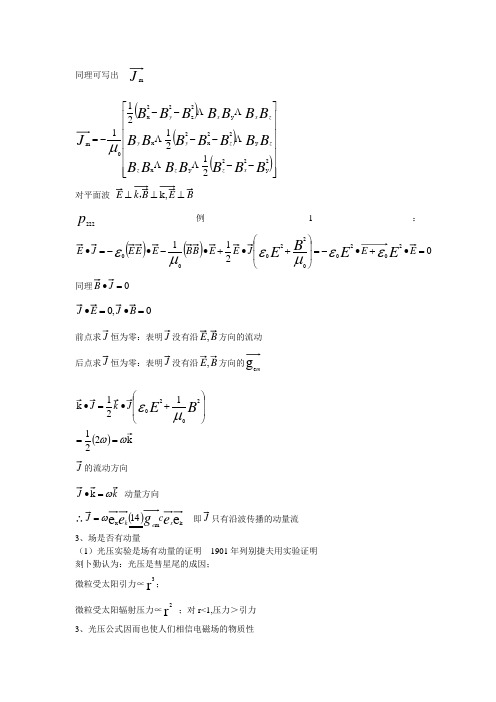 同理可写出 J⃗_m
J⃗_m = −1/μ₀ [ ½(B²_x − B²_y − B²_z) Λ B_x B_y Λ B_x B_z
B_y B_x Λ ½(B²_y − B²_x − B²_z) Λ B_y B_z
B_z B_x Λ B_z B_y Λ ½(B²_z − B²_x − B²_y) ]
对平面波 E⃗ ⊥ k⃗,B⃗ ⊥ k,E⃗ ⊥ B⃗
p₂₂₂ 例 1 :
E⃗•J⃗ = −ε₀(E⃗E⃗)•E⃗ − 1/μ₀(B⃗B⃗)•E⃗ + ½E⃗•J⃗(ε₀E² + B²/μ₀) = −ε₀E²•E⃗ + ε₀E²•E⃗ = 0
同理 B⃗•J⃗ = 0
J⃗•E⃗ = 0, J⃗•B⃗ = 0
前点求 J⃗ 恒为零：表明 J⃗ 没有沿 E⃗, B⃗ 方向的流动
后点求 J⃗ 恒为零：表明 J⃗ 没有沿 E⃗, B⃗ 方向的 g⃗_em
k⃗•J⃗ = ½k⃗•J⃗(ε₀E² + 1/μ₀ B²)
= ½(2ω) = ωk⃗
J⃗ 的流动方向
J⃗•k⃗ = ωk⃗ 动量方向
即 J⃗ 只有沿波传播的动量流
3、场是否有动量
（1）光压实验是场有动量的证明 1901 年列别捷夫用实验证明
刻卜勤认为：光压是彗星尾的成因;
微粒受太阳引力∝r³;
微粒受太阳辐射压力∝r² ；对 r<1,压力＞引力
3、光压公式因而也使人们相信电磁场的物质性